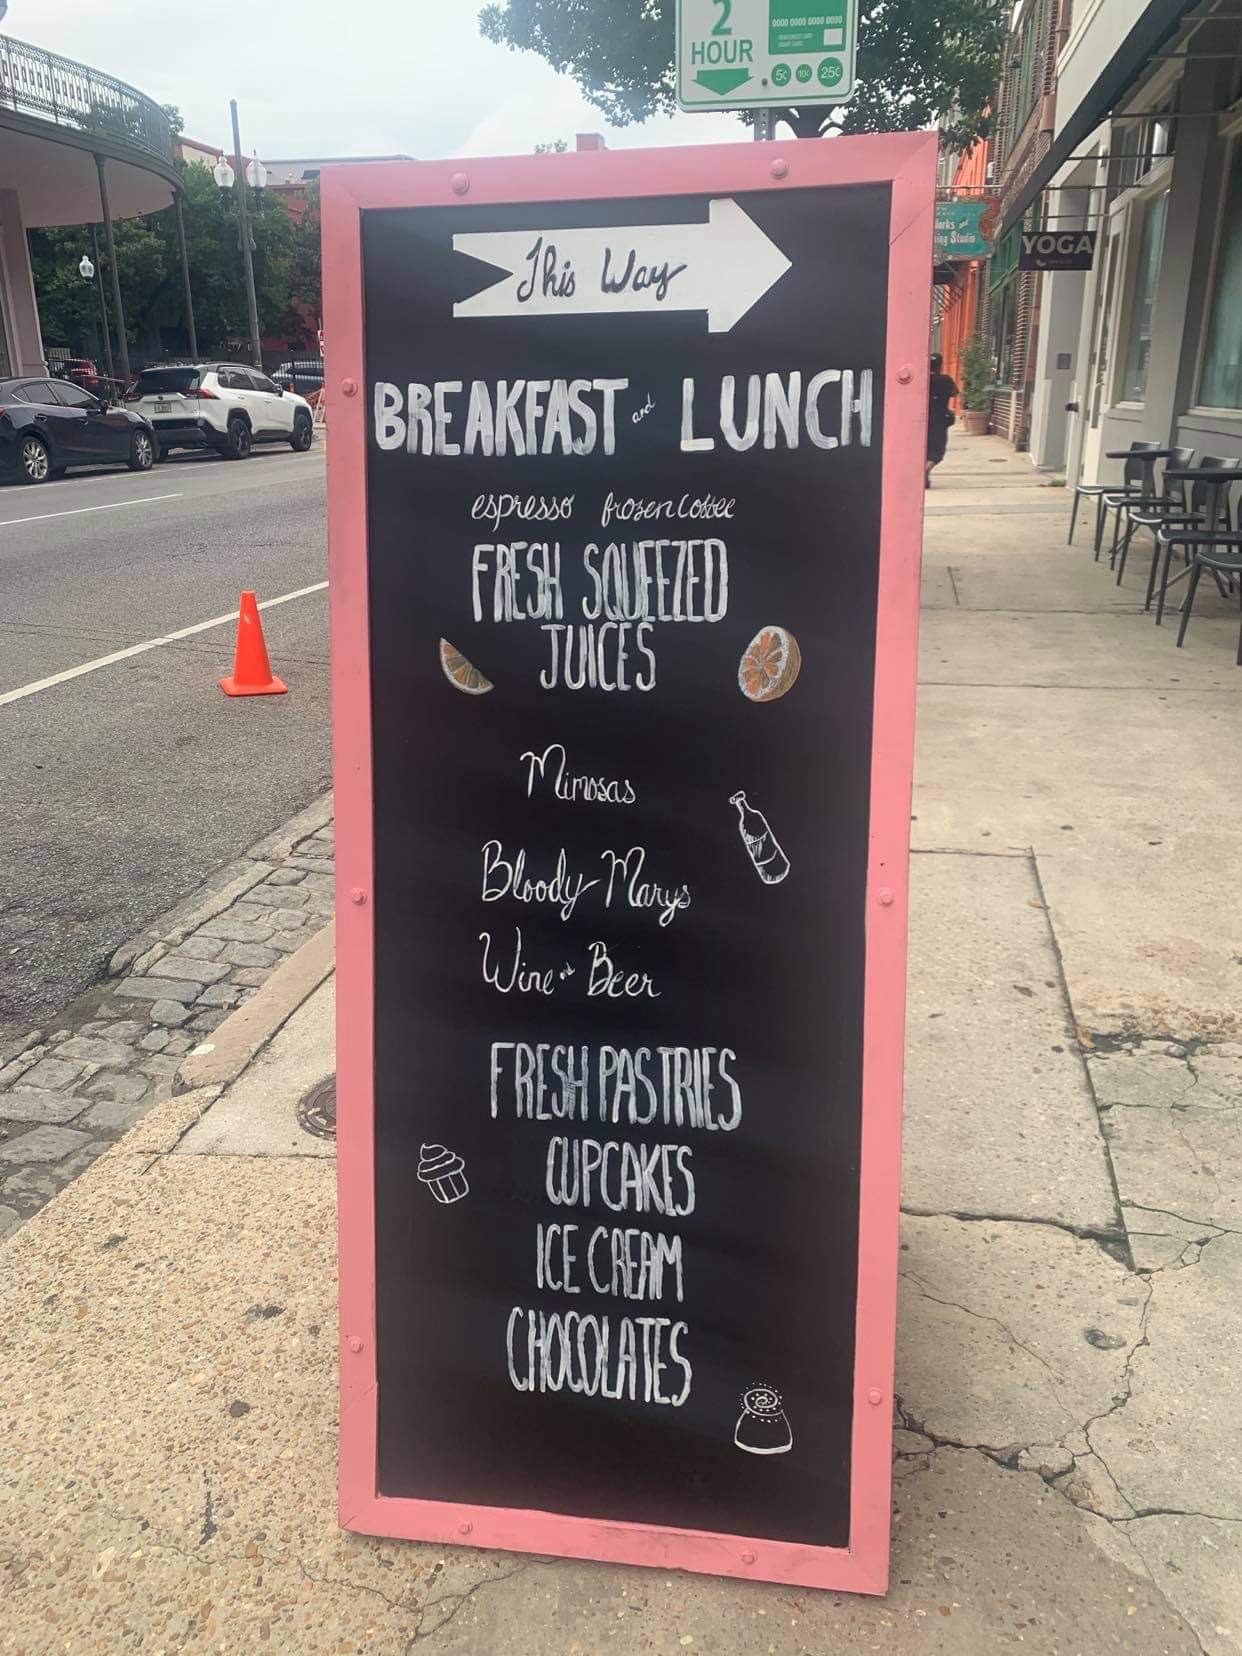 2
HOUR
0000 0000 0000 0000
5¢ 10¢ 25¢
This Way
YOGA
Studio
BREAKFAST and LUNCH
espresso frozen coffee
FRESH SQUEEZED
JUICES
Mimosas
Bloody Marys
Wine and Beer
FRESH PASTRIES
CUPCAKES
ICE CREAM
CHOCOLATES